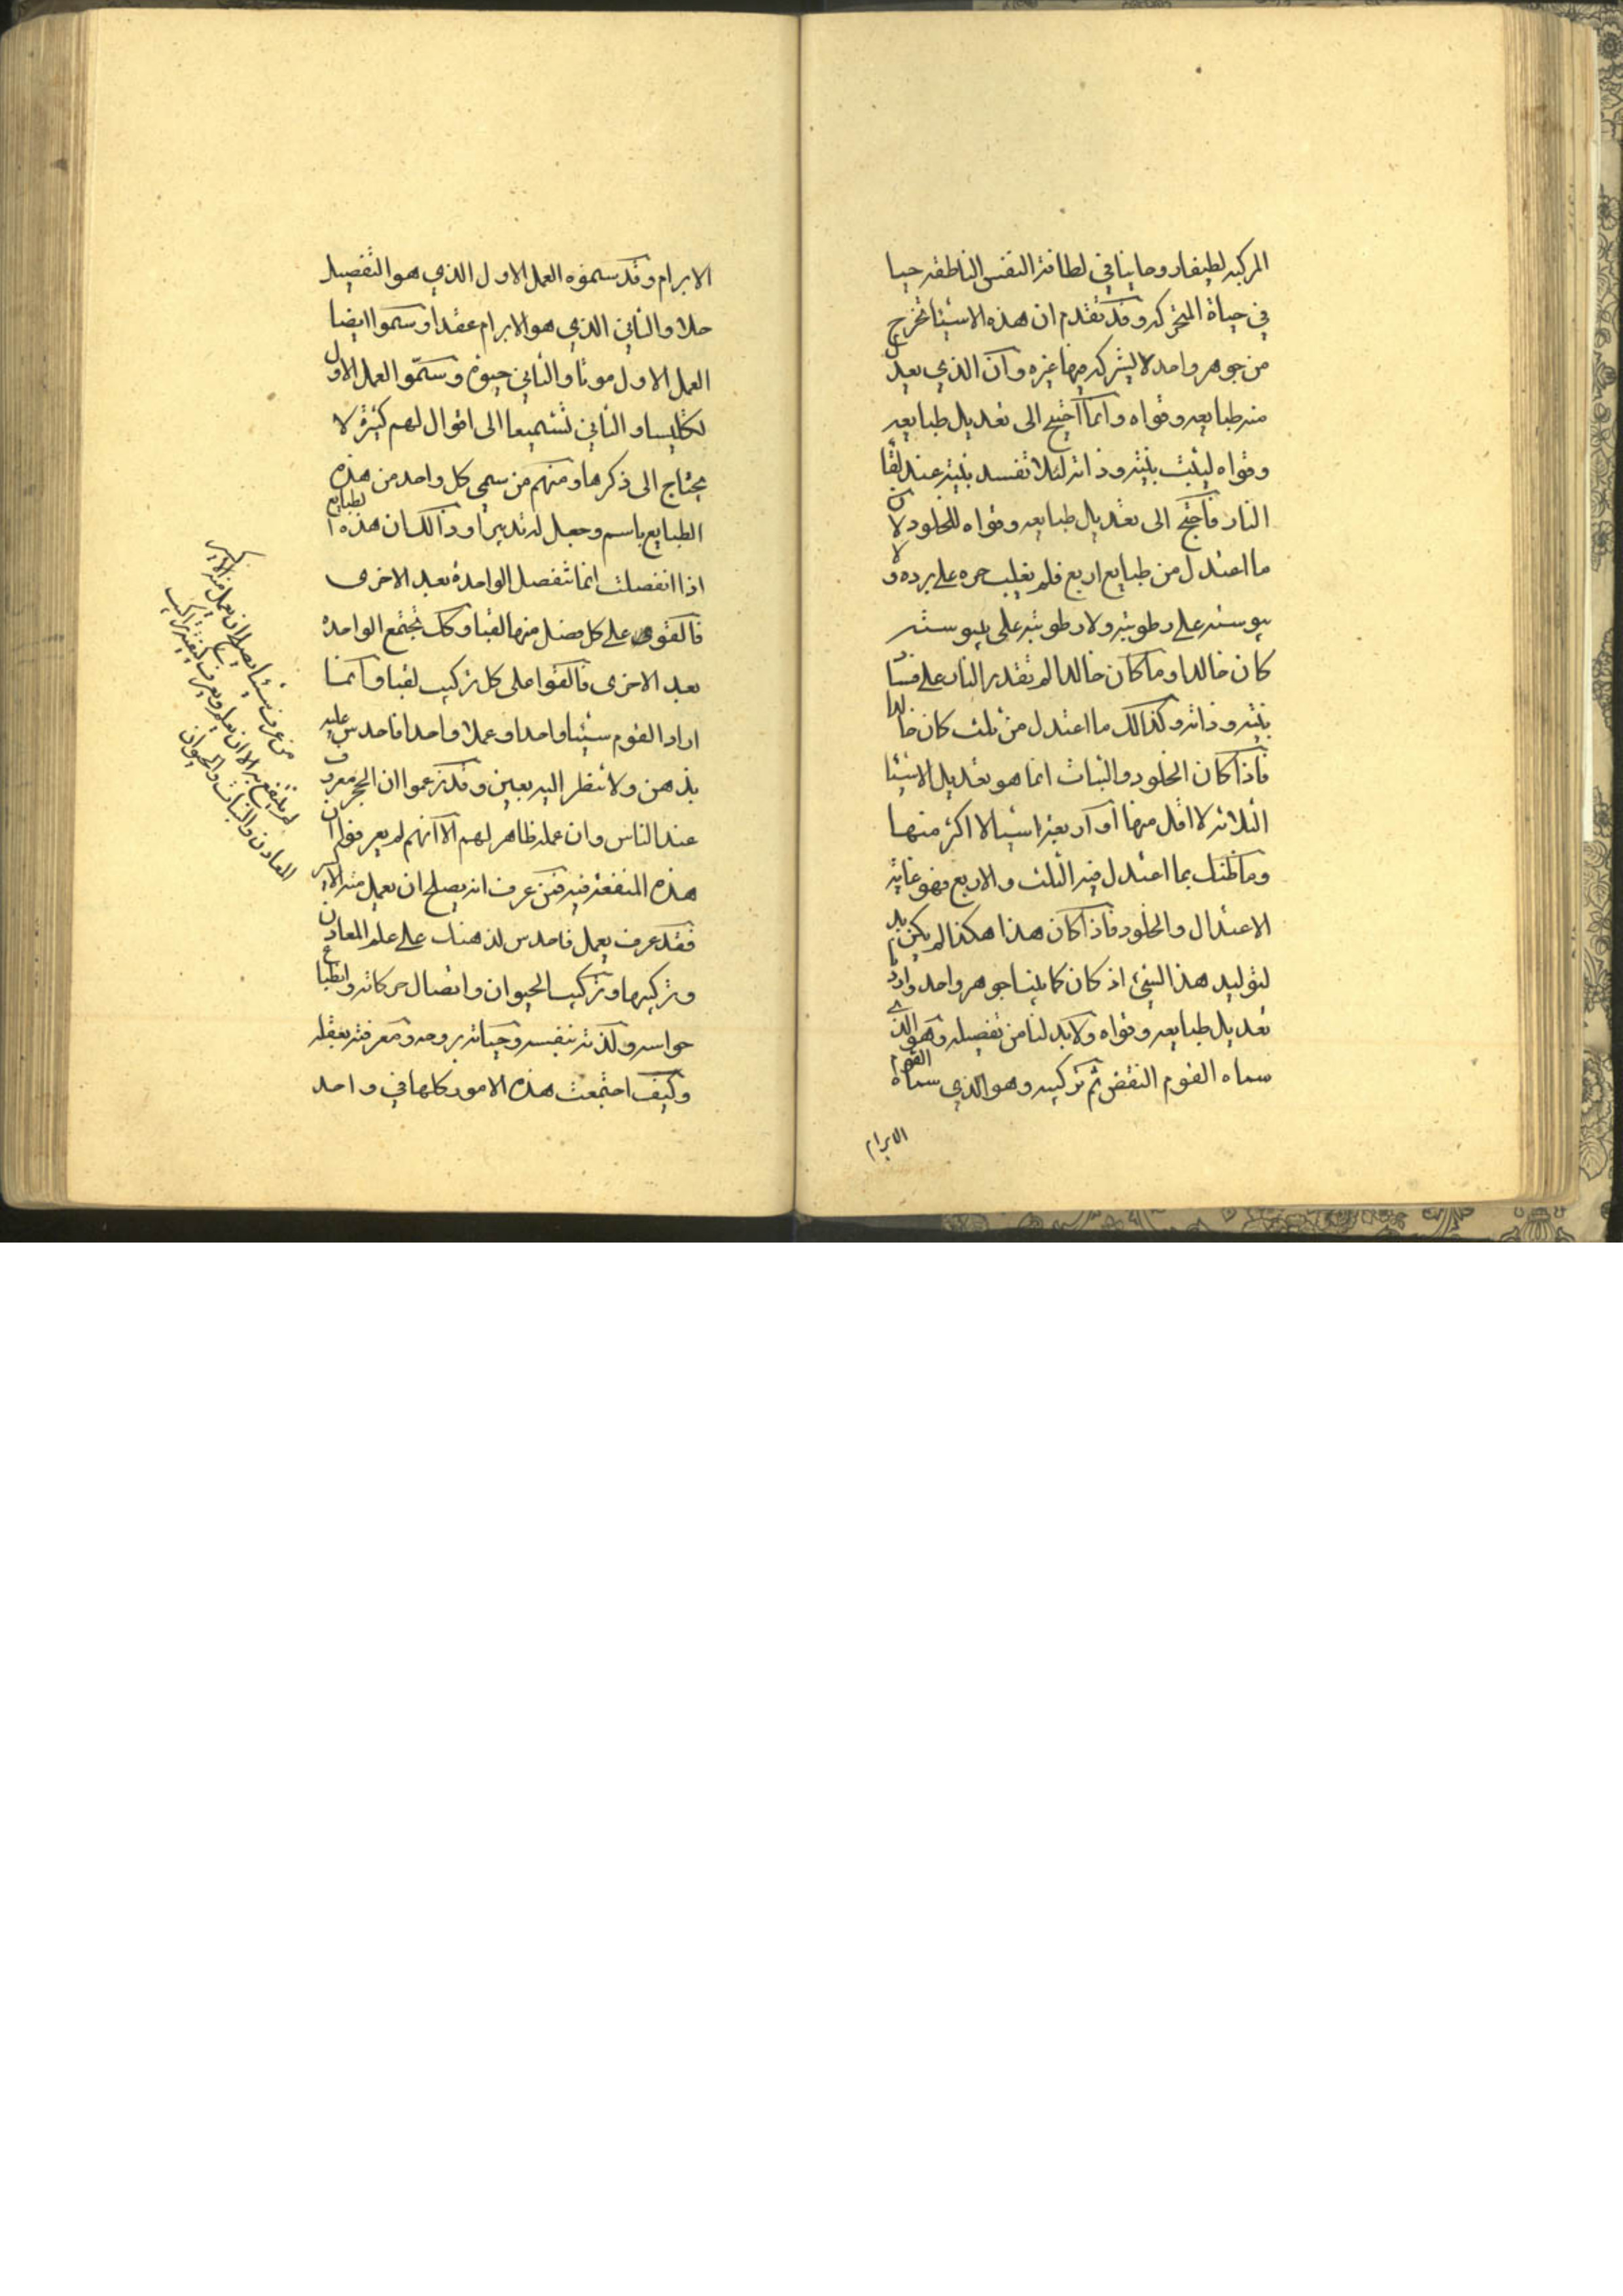 المركبه لطيفا روحانيا في لطافة النفس الناطقه حيا
في حياة المتحركه وقد تقدم ان هذه الاشيا تخرج
من جوهر واحد لا يشركه فيها غيره وان الذي يعدل
منه طبايعه وقواه وانما احتيج الى تعديل طبايعه
وقواه ليثبت بنيته وذاته لئلا تفسد بنيته عند لقا
النار فاحتج الى تعديل طبايعه وقواه للخلود لان
ما اعتدل من طبايع اربع فلم يغلب حره على برده ولا
يبوسته على رطوبته ولا رطوبته على يبوسته
كان خالدا وما كان خالدا لم تقدر النار على فساد
بنيته وذاته وكذالك ما اعتدل من ثلث كان خالدا
فاذا كان الخلود والثبات انما هو تعديل الاشيا
الثلاثه لا اقل منها او اربعة اشيا لا اكثر منها
وما ظنك بما اعتدل فيه الثلث والاربع فهو غاية
الاعتدال والخلود فاذا كان هذا هكذا لم يكن بد
لتوليد هذا الشئ اذ كان كاينا جوهر واحد واردنا
تعديل طبايعه وقواه ولا بد لنا من تفصيله وهو الذي
سماه القوم النقض ثم تركيبه وهو الذي سماه القوم
الابرام
الابرام وقد سموه العمل الاول الذي هو التفصيل
حلا والثاني الذي هو الابرام عقدا وسموا ايضا
العمل الاول موتا والثاني حيوة وسموا العمل الاول
تكليسا والثاني تشميعا الى اقوال لهم كثيرة لا
يحتاج الى ذكرها ومنهم من سمى كل واحد من هذه
الطبايع باسم وجعل له تدبيرا وذالك ان هذه الطبايع
اذا انفصلت انما تنفصل الواحدة بعد الاخرى
فالقوى على كل فصل منها لقبا وكك تجتمع الواحدة
بعد الاخرى فالقوا على كل تركيب لقبا وانما
اراد القوم شيئا واحدا وعملا واحدا فاحدس عليه
بذهن ولا تنظر اليه بعين وقد زعموا ان الحجر معروف
عند الناس وان عمله ظاهر لهم الا انهم لم يعرفوا ان
هذه المنفعة فيه فمن عرف انه يصلح ان يعمل منه الاكسير
فقد عرف يعمل فاحدس لذهنك على علم المعادن
وتركيبها وتركيب الحيوان واتصال حركاته وانطباع
حواسه ولذته بنفسه وحياته بروحه ومعرفته بعقله
وكيف اجتمعت هذه الامور كلها في واحد
من عرف شيئا يصلح ان يعمل منه الاكسير
لم ينتفع به الا ان يعلم ويعرف كيفية تراكيب
المعادن والنبات والحيوان